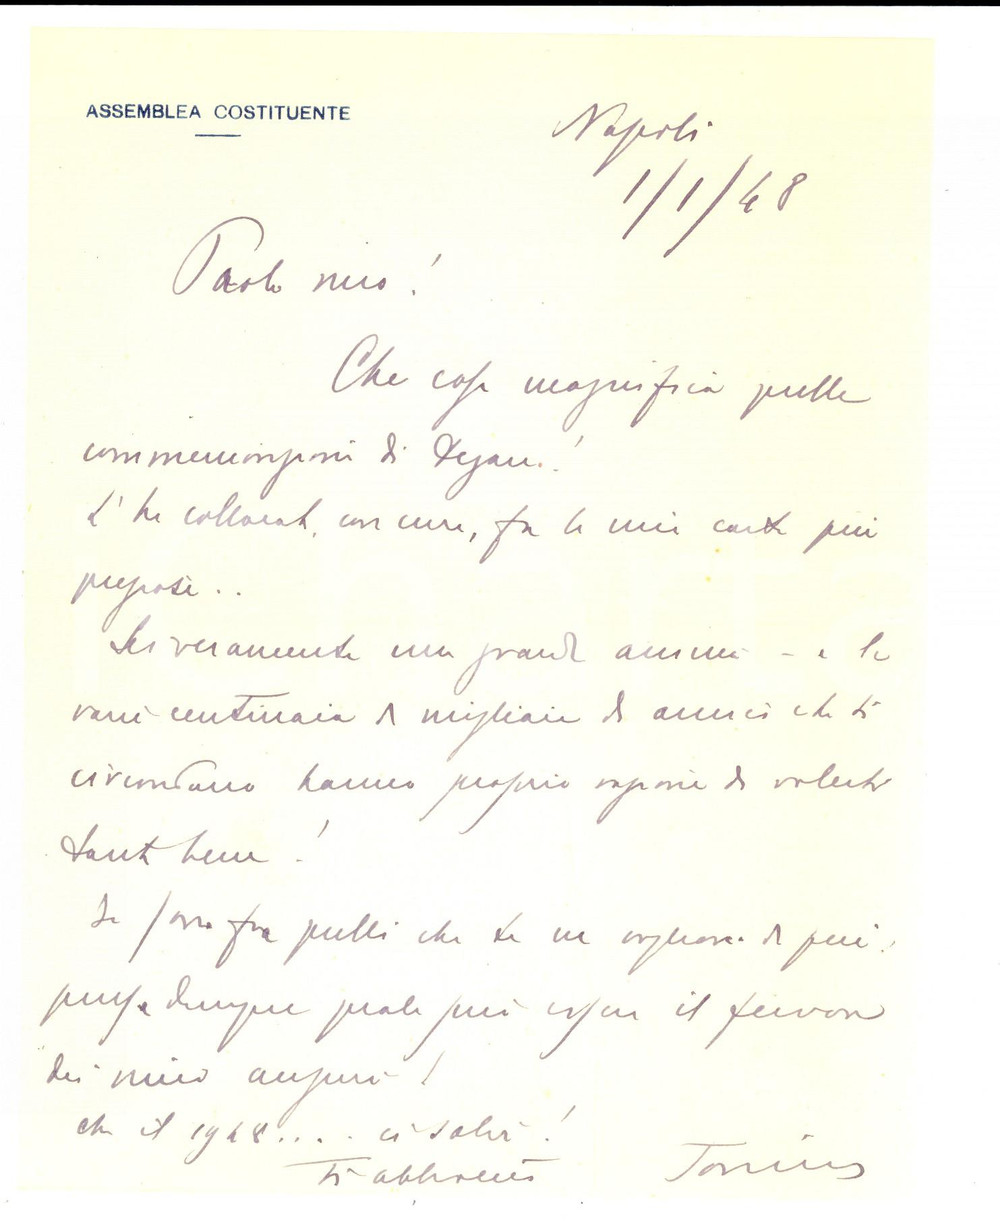 ASSEMBLEA COSTITUENTE
Napoli
1/1/48
Paolo mio!
Che cosa magnifica quelle
commemorazioni di !
L'ho collocata, con cura, fra le mie carte più
preziose..
Sei veramente una grande anima – e le
varie centinaia di migliaia di amici che ti
circondano hanno proprio ragione di volerti
tanto bene!
Io sono fra quelli che te ne vogliono di più!
pensa dunque quale può essere il fervore
dei miei auguri!
che il 1948.... ci salvi!
Ti abbraccio Tonino